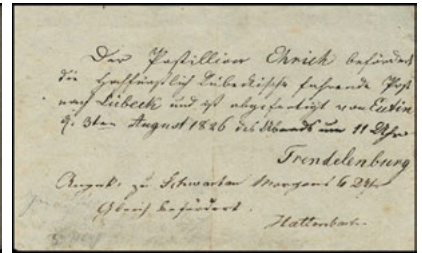 Der Postillion Ehrich befördert
die Hochfürstlich Lübeckische fahrende Post
nach Lübeck und ist abgefertigt von Eutin
d. 3ten August 1826 des Abends um 11 Uhr
Trendelenburg
zu Schwartau Morgens 6 Uhr
Gleich befördert.